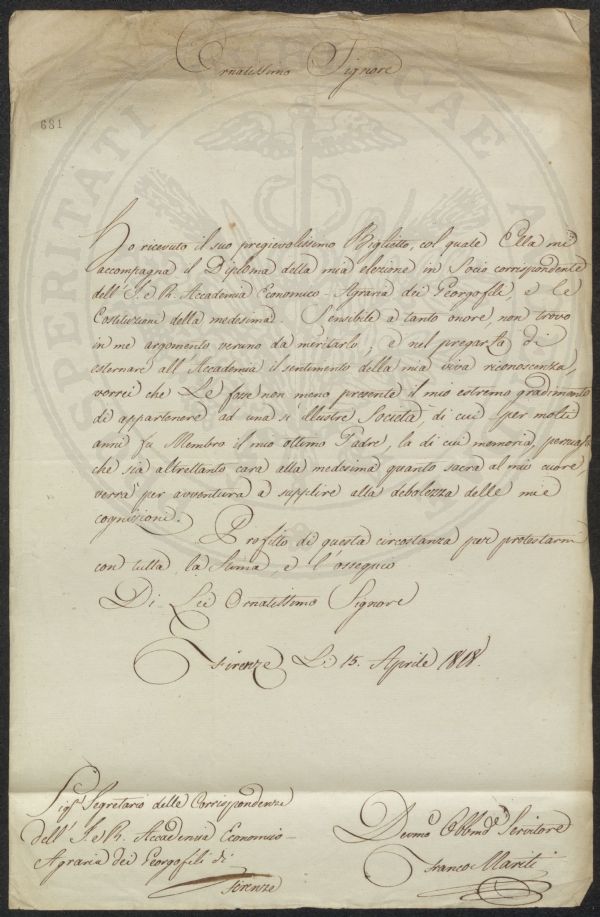 Ornatissimo Signore
681
Ho ricevuto il suo pregievolissimo Biglietto, col quale Ella mi
accompagna il Diploma della mia elezione in Socio corrispondente
dell' I. e R. Accademia Economico-Agraria dei Georgofili, e le
Costituzioni della medesima. Sensibile a tanto onore, non trovo
in me argomento veruno da meritarlo; e nel pregarLa di
esternare all' Accademia il sentimento della mia viva riconoscenza,
vorrei che Le fosse non meno presente il mio estremo gradimento
di appartenere ad una sì illustre Società, di cui per molti
anni fu Membro il mio ottimo Padre, la di cui memoria, persuaso
che sia altrettanto cara alla medesima quanto sacra al mio cuore,
verrà per avventura a supplire alla debolezza delle mie
cognizioni.
Profitto di questa circostanza per protestarmi
con tutta la stima, e l'ossequio
Di Lei Ornatissimo Signore
Firenze Li 15. Aprile 1818.
Sig.r Segretario delle Corrispondenze
dell' I. e R. Accademia Economico-
Agraria dei Georgofili di
Firenze
Devmo Obbmo Servitore
Franco Mariti